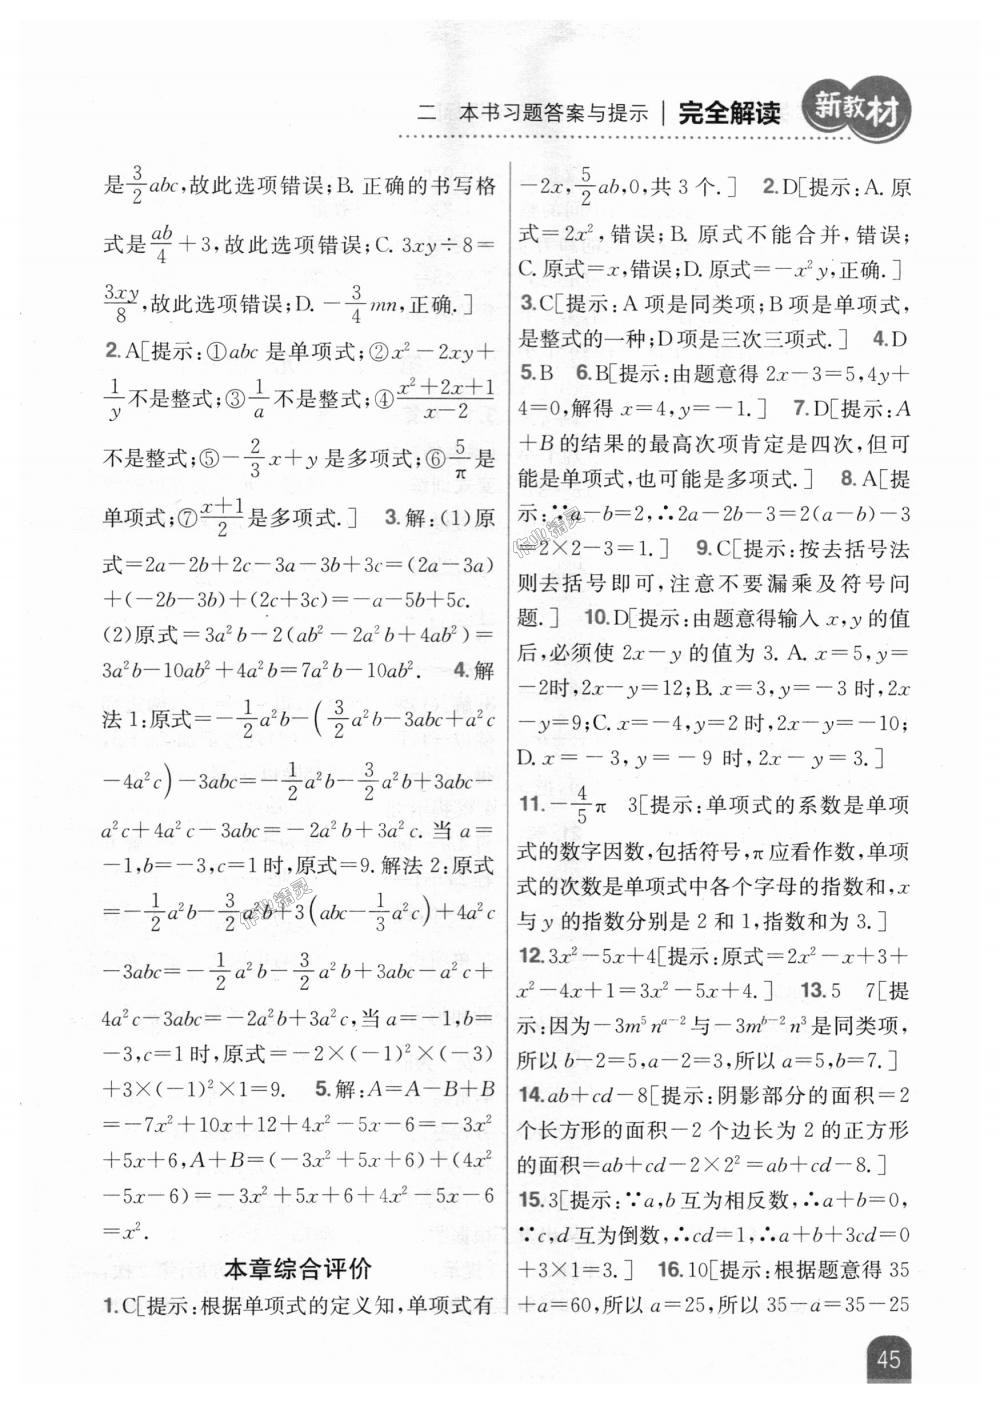 二 本书习题答案与提示 | 完全解读 新教材
是$\frac{3}{2}abc$,故此选项错误;B. 正确的书写格
式是$\frac{ab}{4}+3$,故此选项错误;C. $3xy÷8=$
$\frac{3xy}{8}$,故此选项错误;D. $-\frac{3}{4}mn$,正确.]
2.A[提示:①$abc$ 是单项式;②$x^2-2xy+$
$\frac{1}{y}$不是整式;③$\frac{1}{a}$不是整式;④$\frac{x^2+2x+1}{x-2}$
不是整式;⑤$-\frac{2}{3}x+y$ 是多项式;⑥$\frac{5}{π}$是
单项式;⑦$\frac{x+1}{2}$是多项式.] 3.解:(1)原
式$=2a-2b+2c-3a-3b+3c=(2a-3a)$
$+(-2b-3b)+(2c+3c)=-a-5b+5c.$
(2)原式$=3a^2b-2(ab^2-2a^2b+4ab^2)=$
$3a^2b-10ab^2+4a^2b=7a^2b-10ab^2.$ 4.解
法1:原式$=-\frac{1}{2}a^2b-(\frac{3}{2}a^2b-3abc+a^2c$
$-4a^2c)-3abc=-\frac{1}{2}a^2b-\frac{3}{2}a^2b+3abc-$
$a^2c+4a^2c-3abc=-2a^2b+3a^2c.$ 当 $a=$
$-1,b=-3,c=1$时,原式$=9$.解法2:原式
$=-\frac{1}{2}a^2b-\frac{3}{2}a^2b+3(abc-\frac{1}{3}a^2c)+4a^2c$
$-3abc=-\frac{1}{2}a^2b-\frac{3}{2}a^2b+3abc-a^2c+$
$4a^2c-3abc=-2a^2b+3a^2c$,当$a=-1,b=$
$-3,c=1$时,原式$=-2×(-1)^2×(-3)$
$+3×(-1)^2×1=9.$ 5.解:$A=A-B+B$
$=-7x^2+10x+12+4x^2-5x-6=-3x^2$
$+5x+6,A+B=(-3x^2+5x+6)+(4x^2$
$-5x-6)=-3x^2+5x+6+4x^2-5x-6$
$=x^2.$
本章综合评价
1.C[提示:根据单项式的定义知,单项式有
$-2x,\frac{5}{2}ab,0$,共3个.] 2.D[提示:A. 原
式$=2x^2$,错误;B. 原式不能合并,错误;
C. 原式$=x$,错误;D. 原式$=-x^2y$,正确.]
3.C[提示:A 项是同类项;B 项是单项式,
是整式的一种;D项是三次三项式.] 4.D
5.B 6.B[提示:由题意得 $2x-3=5,4y+$
$4=0$,解得 $x=4,y=-1.$] 7.D[提示:$A$
$+B$的结果的最高次项肯定是四次,但可
能是单项式,也可能是多项式.] 8.A[提
示:∵$a-b=2$,∴$2a-2b-3=2(a-b)-3$
$=2×2-3=1.$] 9.C[提示:按去括号法
则去括号即可,注意不要漏乘及符号问
题.] 10.D[提示:由题意得输入 $x,y$ 的值
后,必须使 $2x-y$ 的值为 3. A. $x=5,y=$
$-2$时,$2x-y=12$;B. $x=3,y=-3$ 时,$2x$
$-y=9$;C. $x=-4,y=2$ 时,$2x-y=-10$;
D. $x=-3,y=-9$ 时,$2x-y=3.$]
11.$-\frac{4}{5}π$ 3[提示:单项式的系数是单项
式的数字因数,包括符号,π应看作数,单项
式的次数是单项式中各个字母的指数和,$x$
与$y$的指数分别是2和1,指数和为3.]
12.$3x^2-5x+4$[提示:原式$=2x^2-x+3+$
$x^2-4x+1=3x^2-5x+4.$] 13.5 7[提
示:因为$-3m^5n^{a-2}$与$-3m^{b-2}n^3$是同类项,
所以$b-2=5,a-2=3$,所以$a=5,b=7.$]
14.$ab+cd-8$[提示:阴影部分的面积=2
个长方形的面积-2个边长为2的正方形
的面积$=ab+cd-2×2^2=ab+cd-8.$]
15.3[提示:∵$a,b$互为相反数,∴$a+b=0$,
∵$c,d$互为倒数,∴$cd=1$,∴$a+b+3cd=0$
$+3×1=3.$] 16.10[提示:根据题意得 35
$+a=60$,所以$a=25$,所以$35-a=35-25$
45
作业精灵
作业精灵